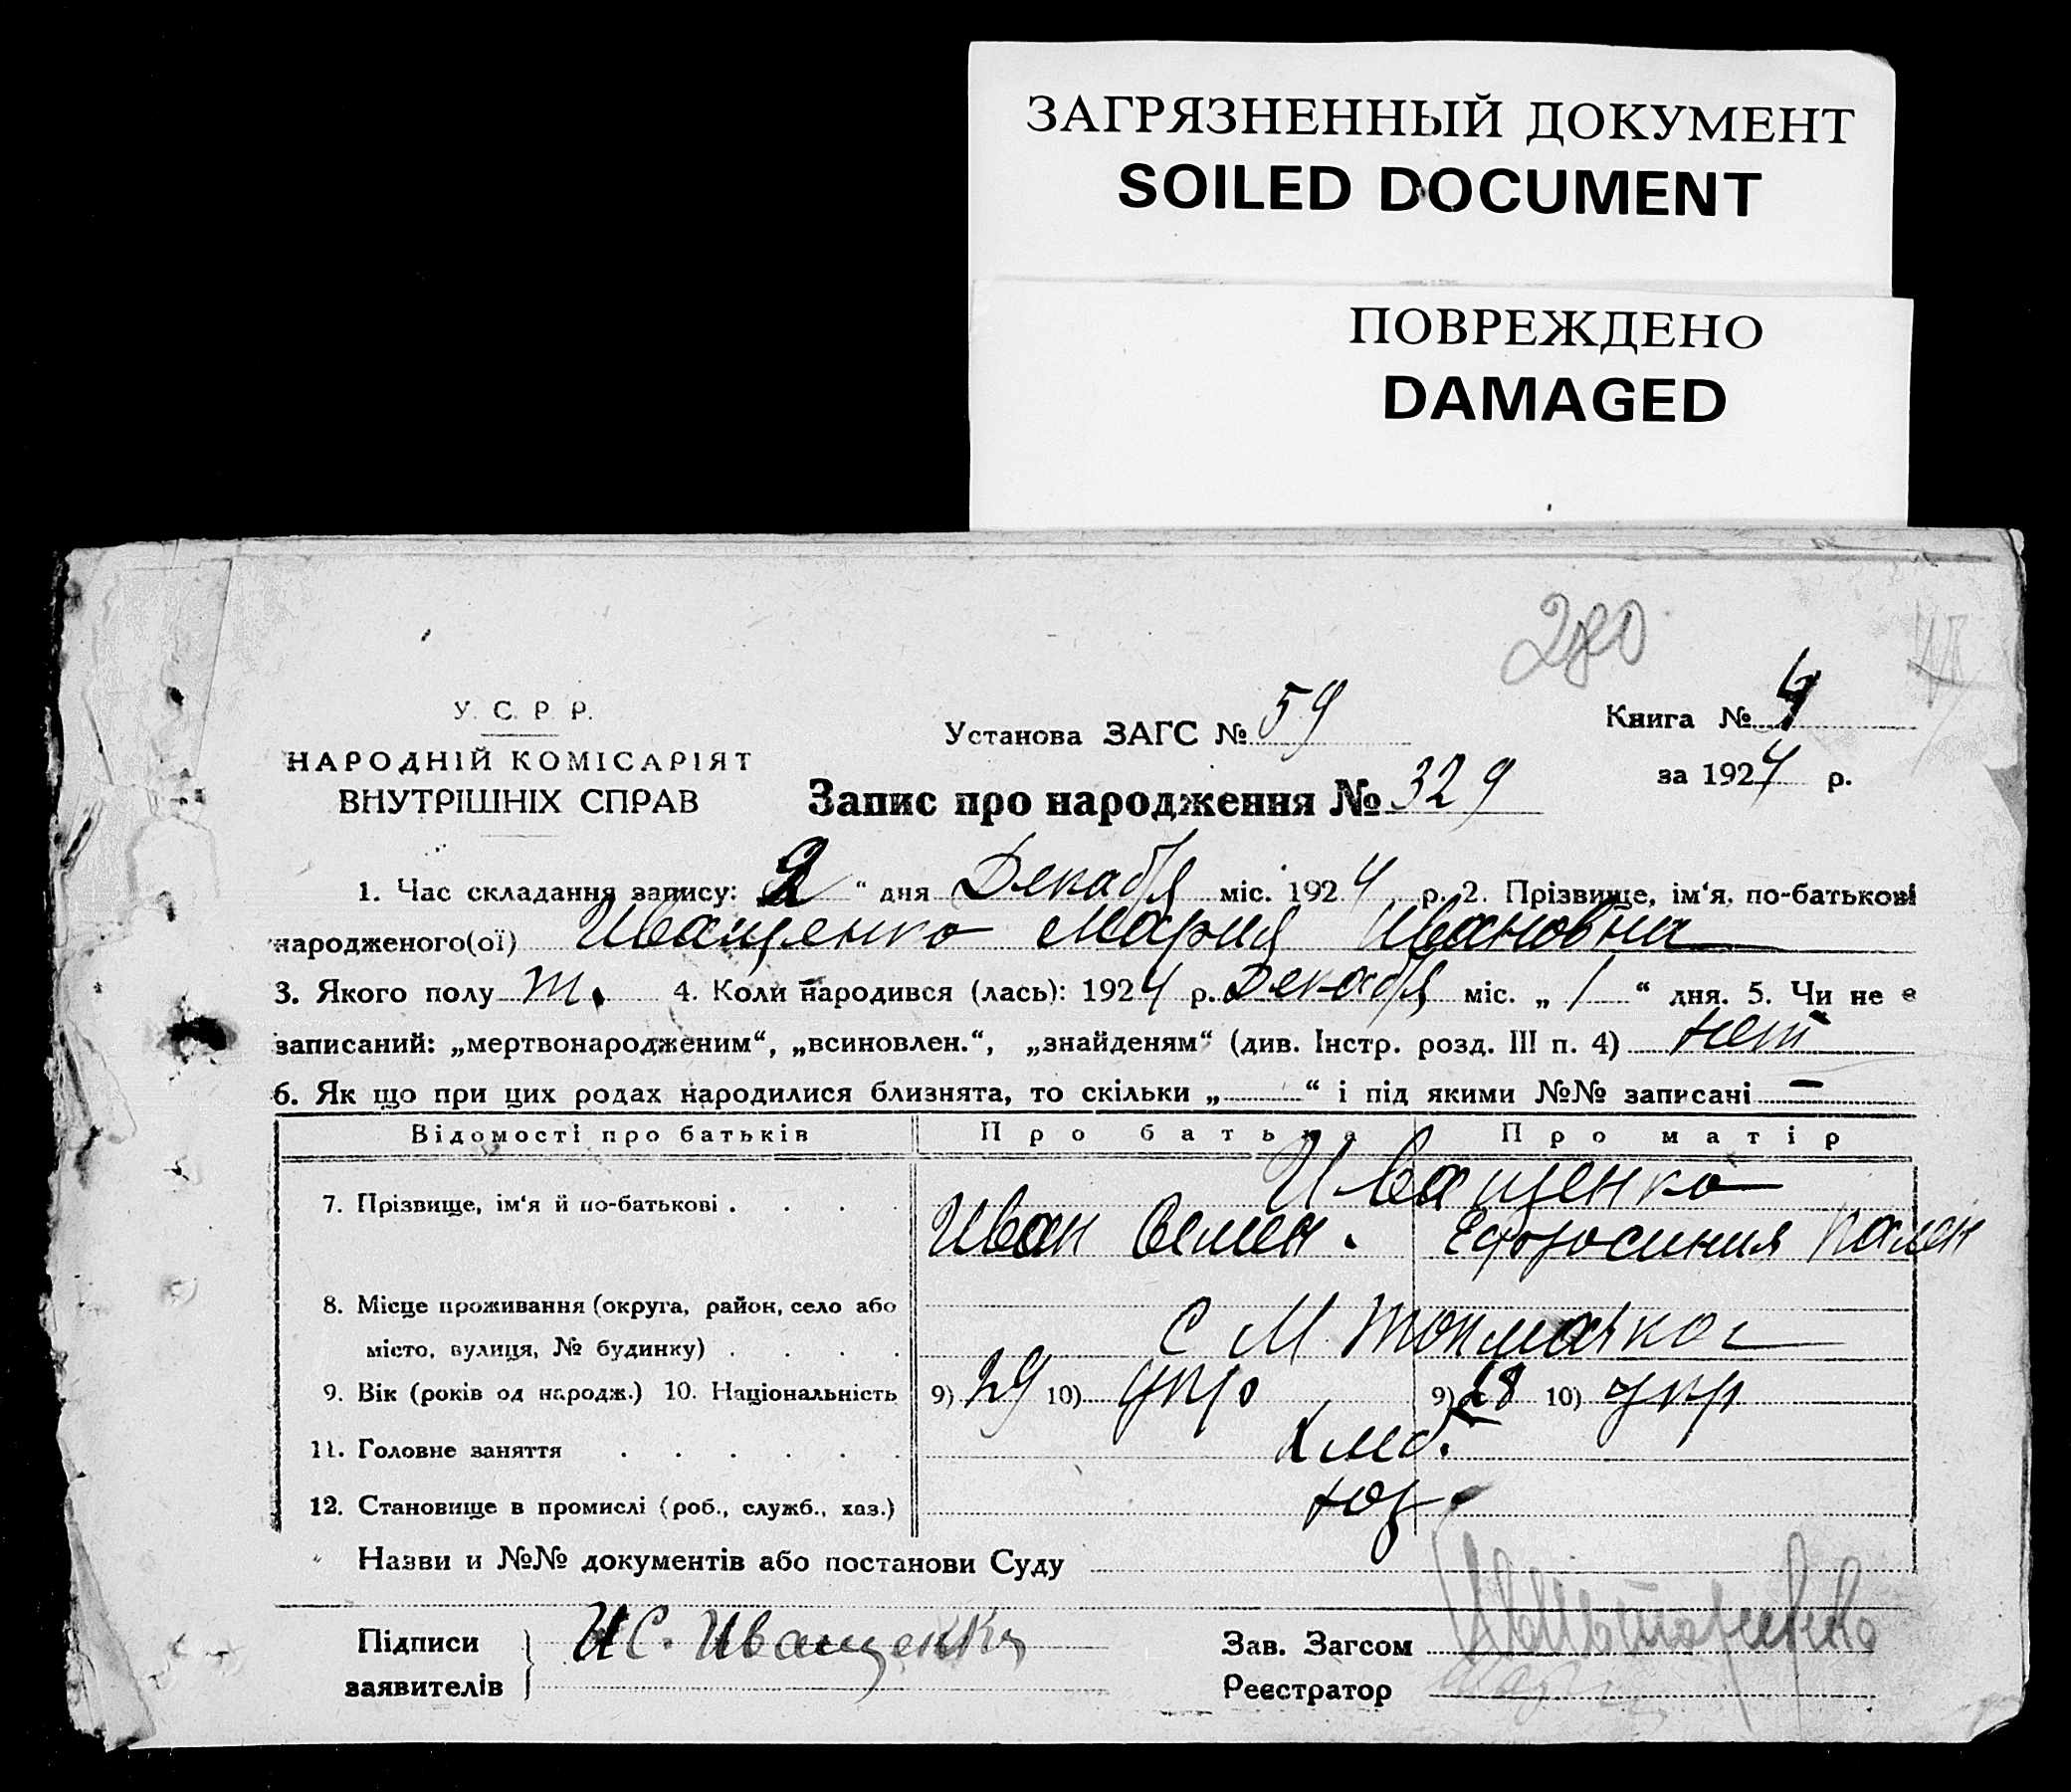 ЗАГРЯЗНЕННЫЙ ДОКУМЕНТ
SOILED DOCUMENT
ПОВРЕЖДЕНО
DAMAGED
280
У. С. Р. Р.
НАРОДНІЙ КОМІСАРІЯТ
ВНУТРІШНІХ СПРАВ
Установа ЗАГС № 59
Книга № 4
за 1924 р.
Запис про народження № 329
1. Час складання запису: 2 “ дня Декабря міс. 1924 р. 2. Прізвище, ім‘я, по-батькові
народженого(ої) Иващенко Мария Ивановна
3. Якого полу ж. 4. Коли народився (лась): 1924 р. Декабря міс. „ 1 “ дня. 5. Чи не є
записаний: „мертвонародженим“, „всиновлен.“, „знайденям“ (див. Інстр. розд. III п. 4) нет
6. Як що при цих родах народилися близнята, то скільки „ “ і під якими №№ записані —
Відомості про батьків Про батька Про матір
Иващенко
7. Прізвище, ім‘я й по-батькові . . . . Иван Семен. Ефросиния
8. Місце проживання (округа, район, село або
місто, вулиця, № будинку) . . . . С М. Токмачка
9. Вік (років од народж.) 10. Національність 9) 29 10) укр 9) 28 10) укр
11. Головне заняття . . . . . . Хлеб.
12. Становище в промислі (роб., служб., хаз.) хоз.
Назви и №№ документів або постанови Суду
Підписи
заявителів
И С. Иващенко
Зав. Загсом
Реєстратор